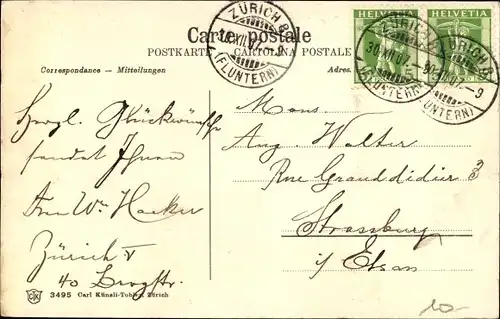 Carte postale
POSTKARTE CARTOLINA POSTALE
Correspondance — Mitteilungen
Adres.
ZÜRICH 8
30.XII.07.-9
(FLUNTERN)
HELVETIA
HELVETIA
5
ZÜRICH 8
30.XII.07.-9
(FLUNTERN)
Herzl. Glückwünsche
sendet Ihnen
Wm Hacker
Zürich V
40
Mons.
Aug. Walter
Rue Grandidier 3
Strassburg
i/ Elsass
3495 Carl Künzli-Tobler, Zürich
10-